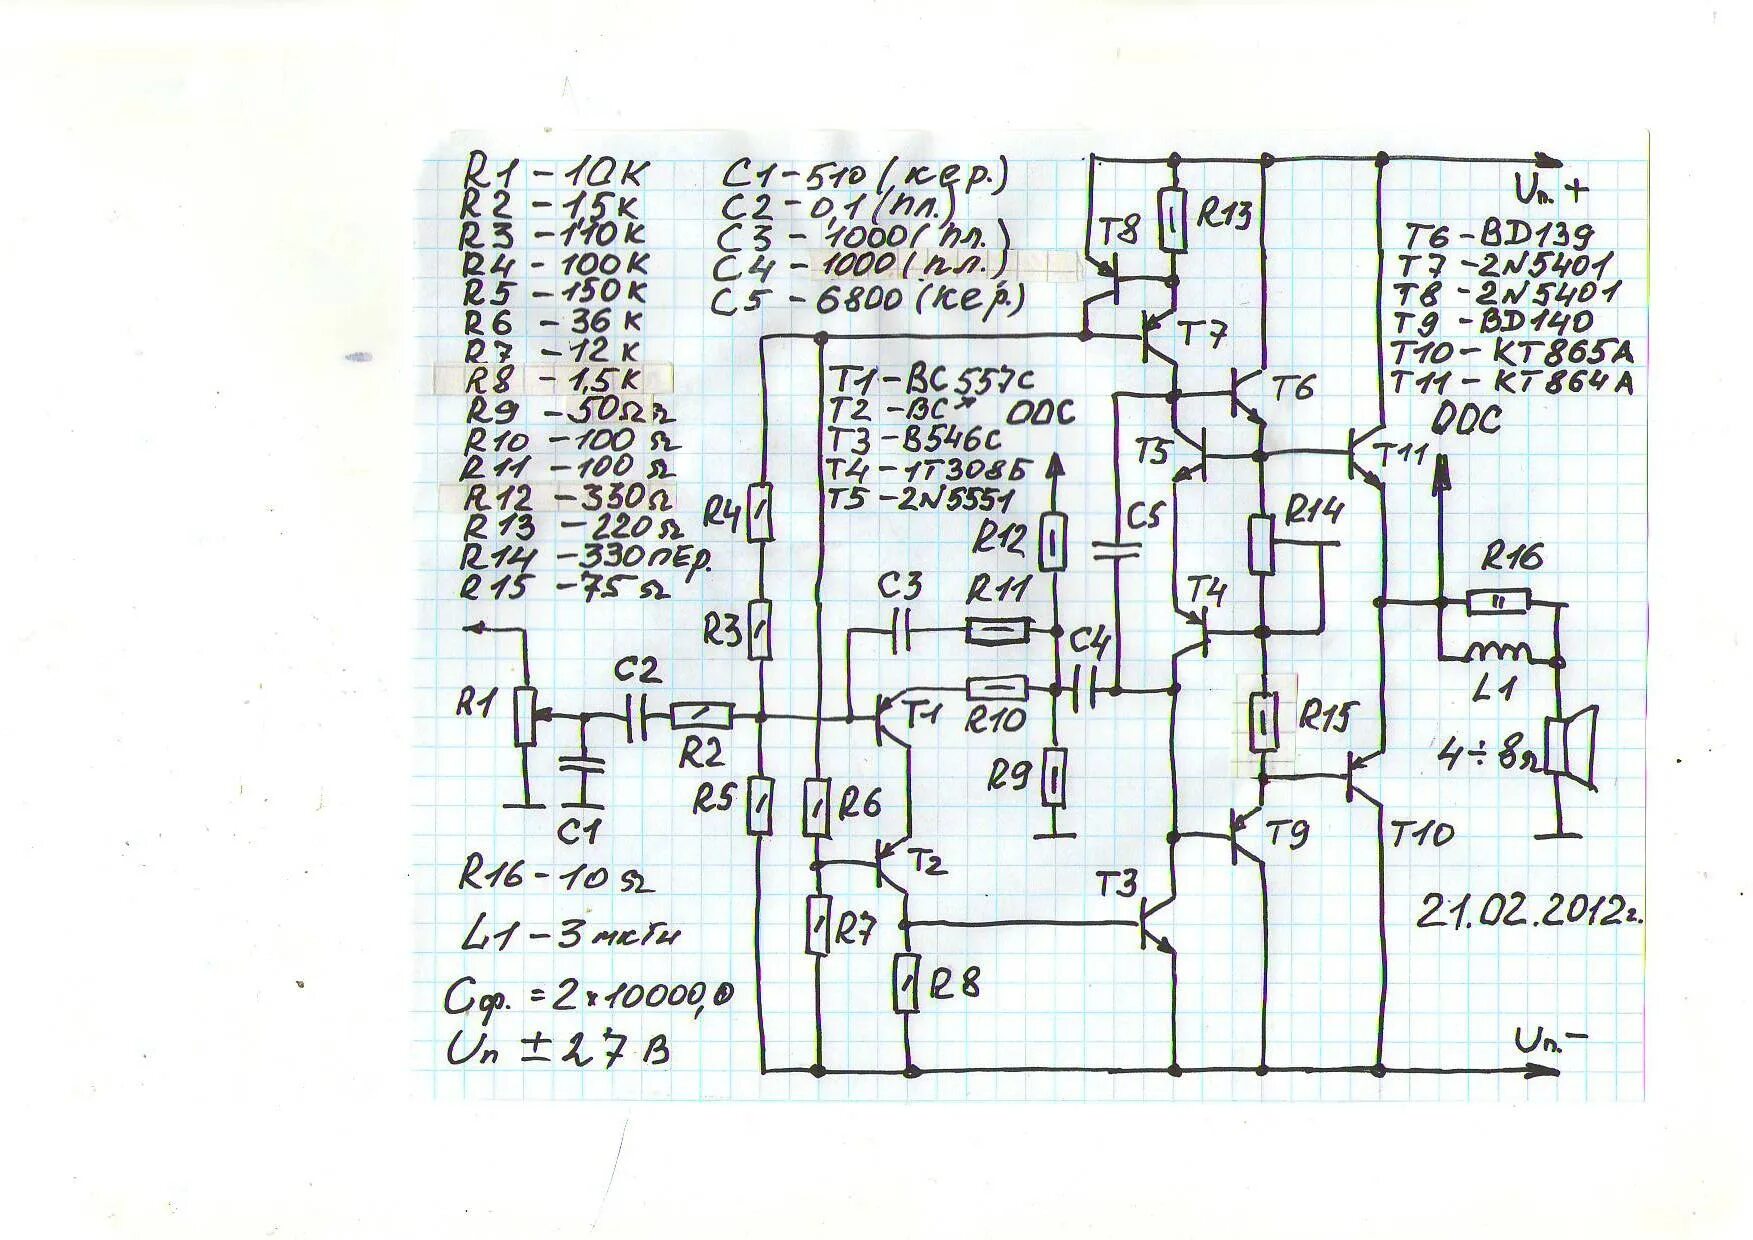 R1 - 10K
R2 - 1,5K
R3 - 110K
R4 - 100K
R5 - 150K
R6 - 36K
R7 - 12K
R8 - 1,5K
R9 - 50Ω
R10 - 100Ω
R11 - 100Ω
R12 - 330Ω
R13 - 220Ω
R14 - 330ПЕР.
R15 - 75Ω
C1 - 510 (кер.)
C2 - 0,1 (пл.)
C3 - 1000 (пл.)
C4 - 1000 (пл.)
C5 - 6800 (кер.)
T1 - BC557C
T2 - BC ООС
T3 - B546C
T4 - 1Т308Б
T5 - 2N5551
Uп. +
T6 - BD139
T7 - 2N5401
T8 - 2N5401
T9 - BD140
T10 - КТ865А
T11 - КТ864А
ООС
T8
R13
T7
T6
T5
T11
R4
R12
C5
R14
R16
C3
R11
T4
R3
C4
C2
R1
R2
T1
R10
R15
L1
R5
R6
R9
4÷8Ω
C1
T9
T10
T2
T3
R7
R8
21.02.2012г.
R16 - 10Ω
L1 - 3мкГн
Cф. = 2×10000,0
Uп ± 27В
Uп. -